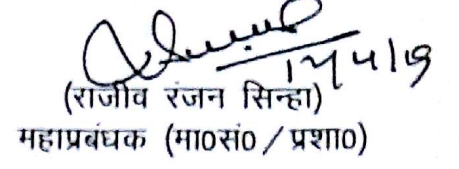 (राजीव रंजन सिन्हा)
महाप्रबंधक (मा०सं०/प्रशा०)